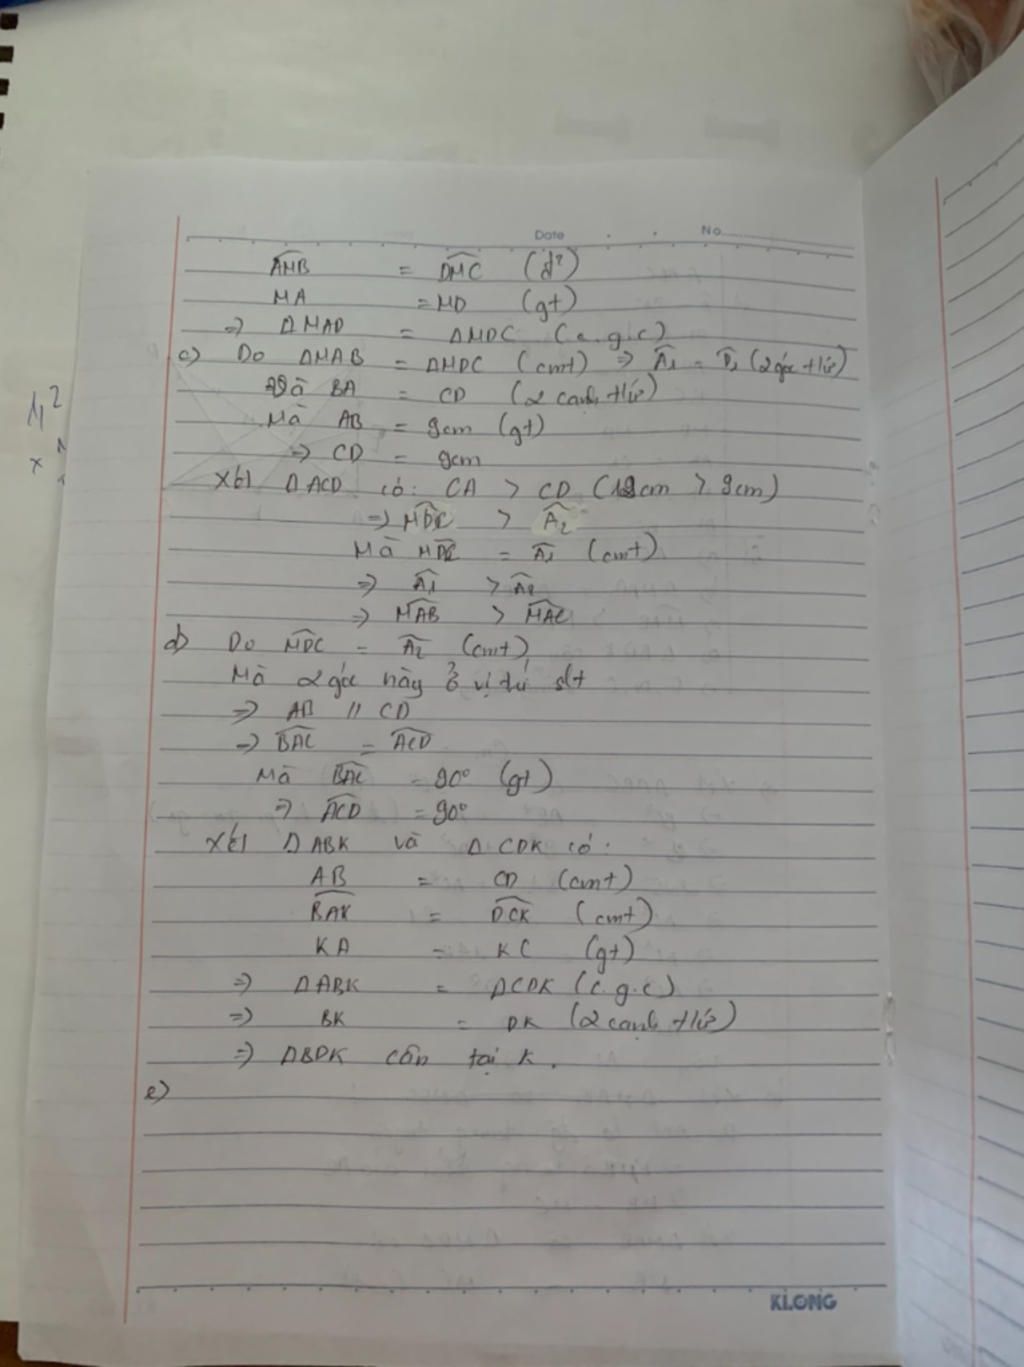 Date No
AMB = DMC (đ²)
MA = MD (gt)
=> ΔMAD = ΔMDC (c.g.c)
c) Do ΔMAB = ΔMDC (cmt) => A₁ = D₁ (2 góc tứ)
và BA = CD (2 cạnh tứ)
Mà AB = 9cm (gt)
=> CD = 9cm
Xét ΔACD có: CA > CD (12cm > 9cm)
=> MDC > A₂
Mà MDC = A₁ (cmt)
=> A₁ > A₂
=> MAB > MAC
d) Do MDC = A₂ (cmt)
Mà 2 góc này ở vị trí slt
=> AB // CD
=> BAC = ACD
Mà BAC = 90° (gt)
=> ACD = 90°
Xét ΔABK và ΔCDK có:
AB = CD (cmt)
BAK = DCK (cmt)
KA = KC (gt)
=> ΔABK = ΔCDK (c.g.c)
=> BK = DK (2 cạnh tứ)
=> ΔBDK cân tại K.
e)
KLONG